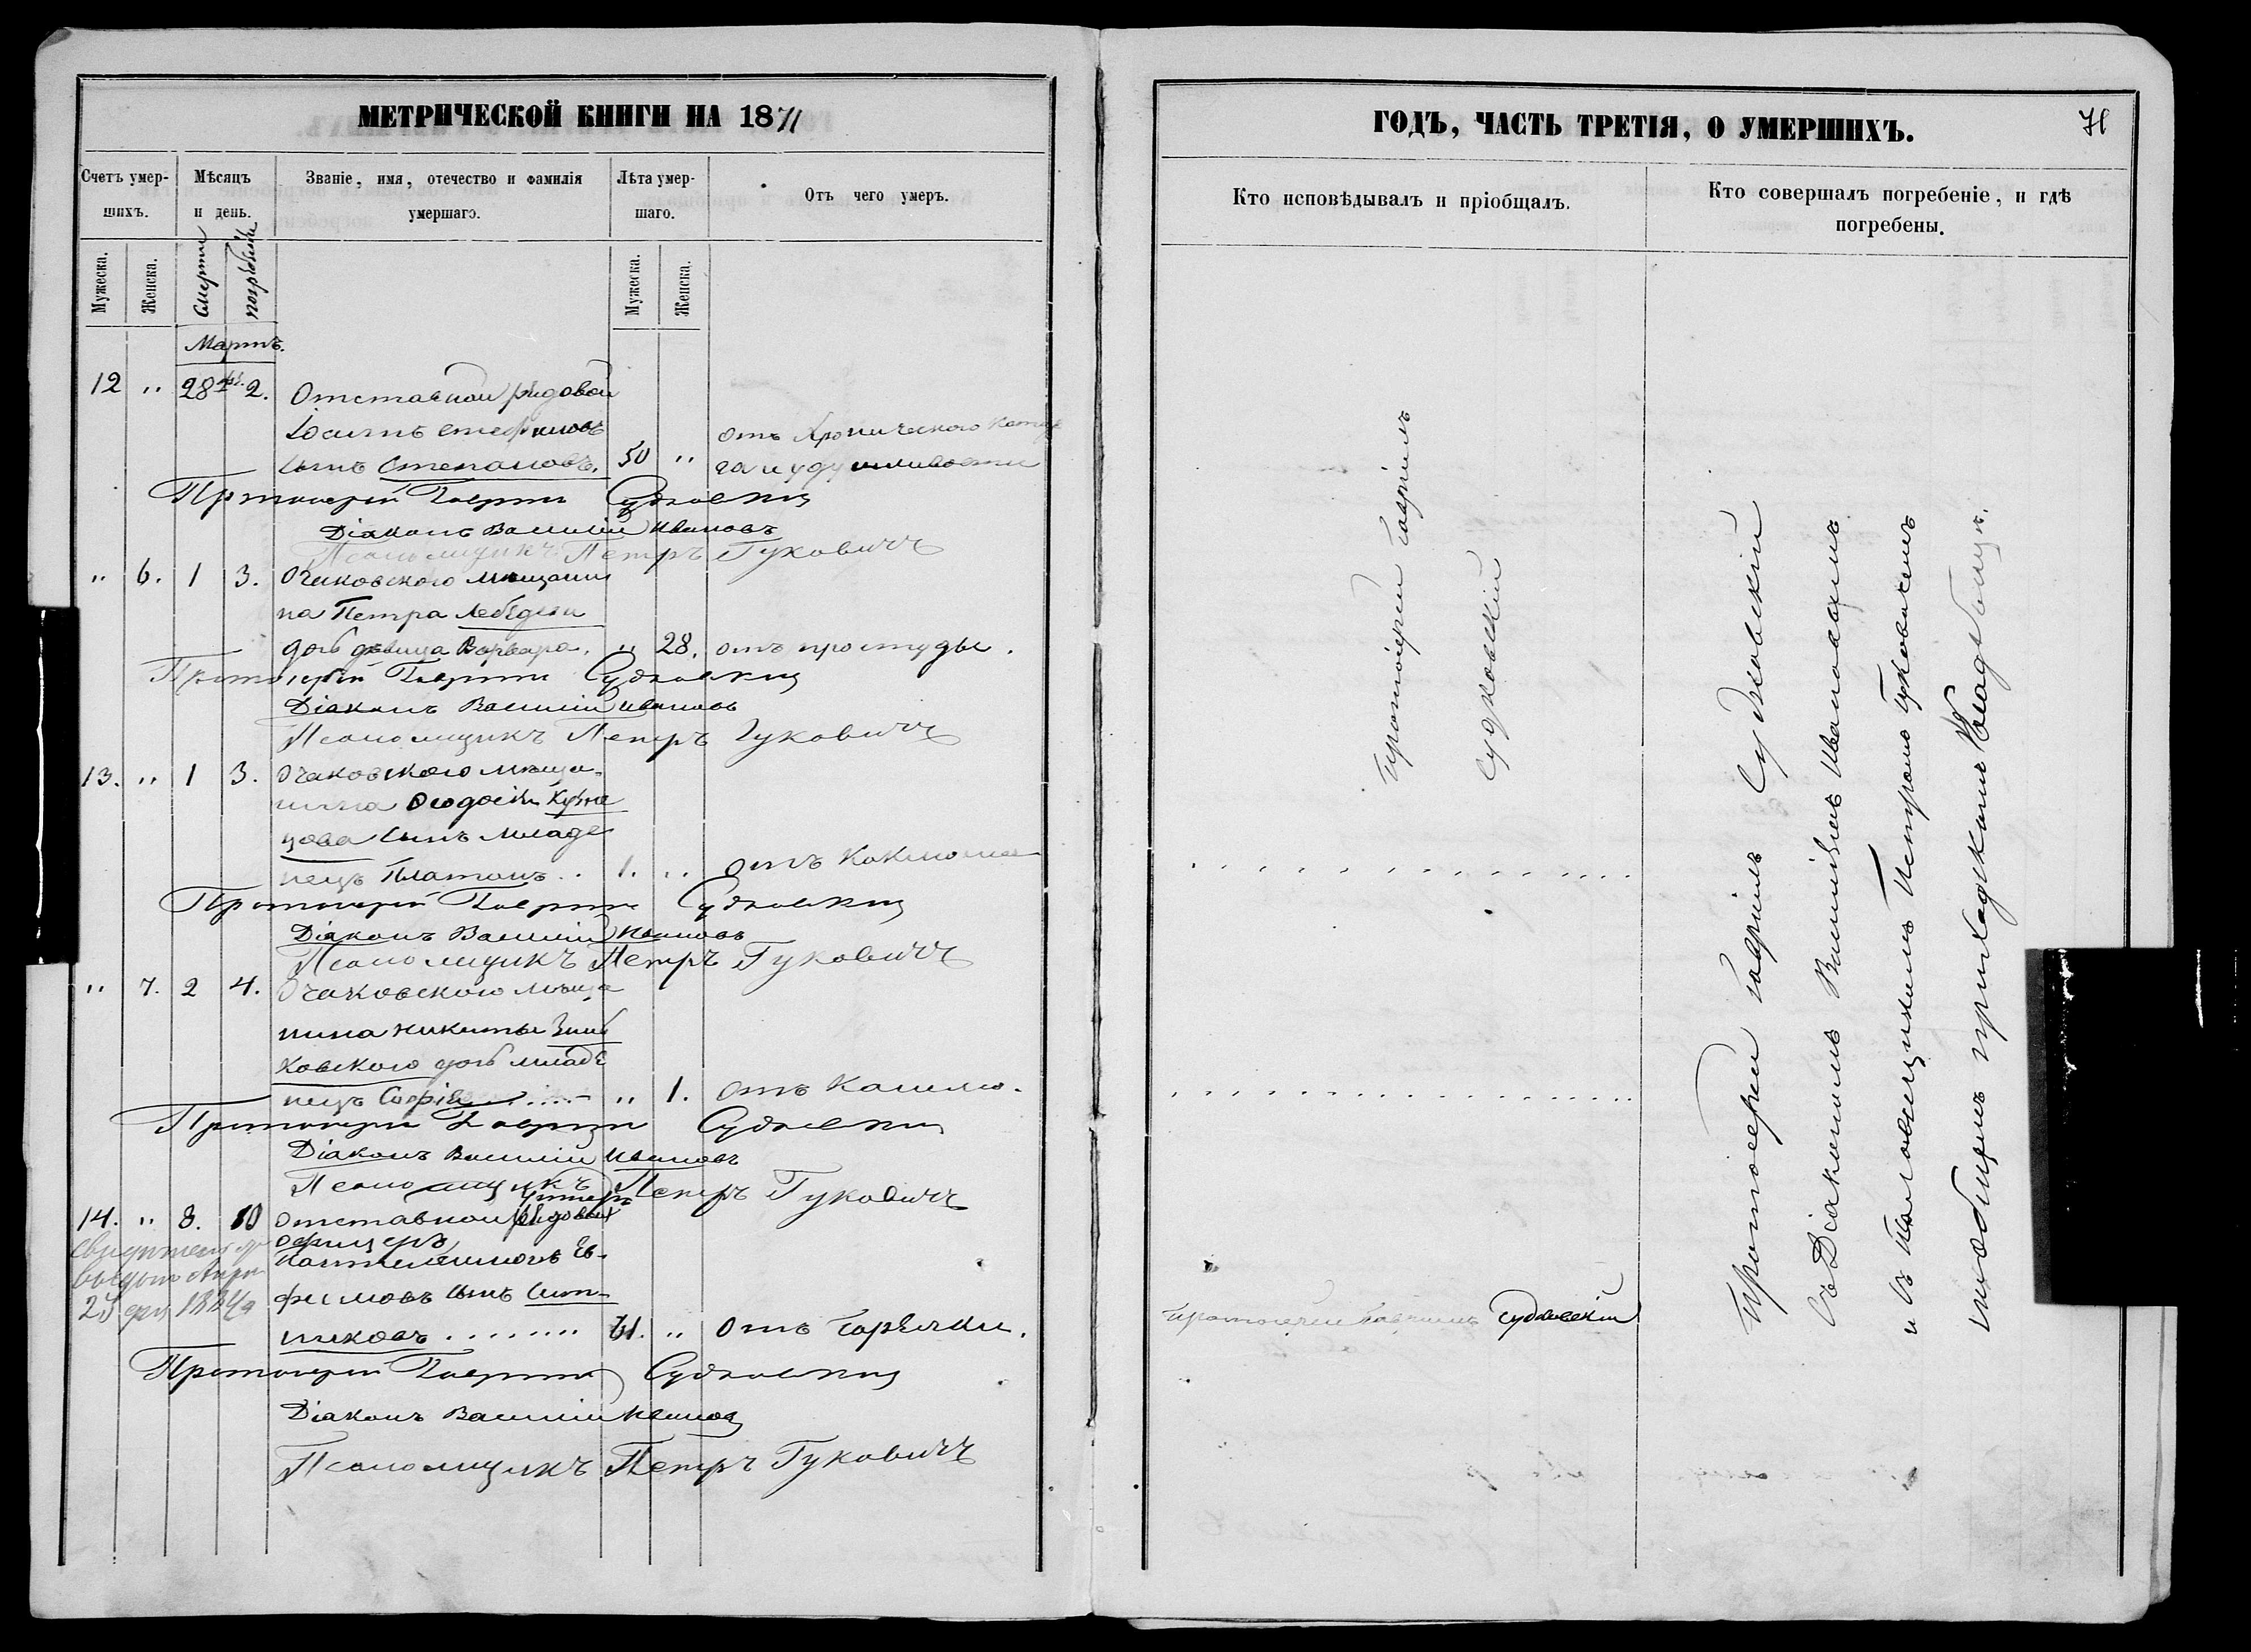 МЕТРИЧЕСКОЙ КНИГИ НА 1871
Счетъ умер-
шихъ.
Мѣсяцъ
и день.
Званіе, имя, отечество и фамилія
умершаго.
Лѣта умер-
шаго.
Отъ чего умеръ.
Мужеска.
Женска.
Смерти
погребенія
Мужеска.
Женска.
Мартъ.
12 " 28 2. Отставной рядовой
Іосифъ
сынъ Степановъ. 50 "
отъ хроническаго
и удушливости
Протоіерей Гавріилъ Судковскій
Діаконъ Василій Ивановъ
Псаломщикъ Петръ Гуковичъ
" 6. 1 3. Очаковского мѣщани
на Петра Лебедева
дочь дѣвица Варвара. " 28. отъ простуды.
Протоіерей Гавріилъ Судковскій
Діаконъ Василій Ивановъ
Псаломщикъ Петръ Гуковичъ
13. " 1 3. Очаковского мѣща-
нина Ѳеодосія Кузне
цова сынъ младе
нецъ Платонъ.. 1. .. отъ Коклюша
Протоіерей Гавріилъ Судковскій
Діаконъ Василій Ивановъ
Псаломщикъ Петръ Гуковичъ
" 7. 2 4. Очаковского мѣща
нина Никиты
ковского дочь младе
нецъ Софія " 1. отъ Кашлю.
Протоіерей Гавріилъ Судковскій
Діаконъ Василій Ивановъ
Псаломщикъ Петръ Гуковичъ
14. " 8. 10 отставной
унтеръ
офицеръ
Пантелеимонъ Ев-
фимовъ сынъ Сит-
никовъ " отъ Горячки.
Протоіерей Гавріилъ Судковскій
Діаконъ Василій Ивановъ
Псаломщикъ Петръ Гуковичъ
ГОДЪ, ЧАСТЬ ТРЕТІЯ, О УМЕРШИХЪ.
71
Кто исповѣдывалъ и пріобщалъ.
Кто совершалъ погребеніе, и гдѣ
погребены.
Протоіерей Гавріилъ
Судковскій
Протоіерей Гавріилъ Судковскій
Протоіерей Гавріилъ Судковскій
Съ Діакономъ Василіемъ Ивановымъ
и съ Псаломщикомъ Петромъ Гуковичемъ
на общемъ приходскомъ Кладбищѣ.